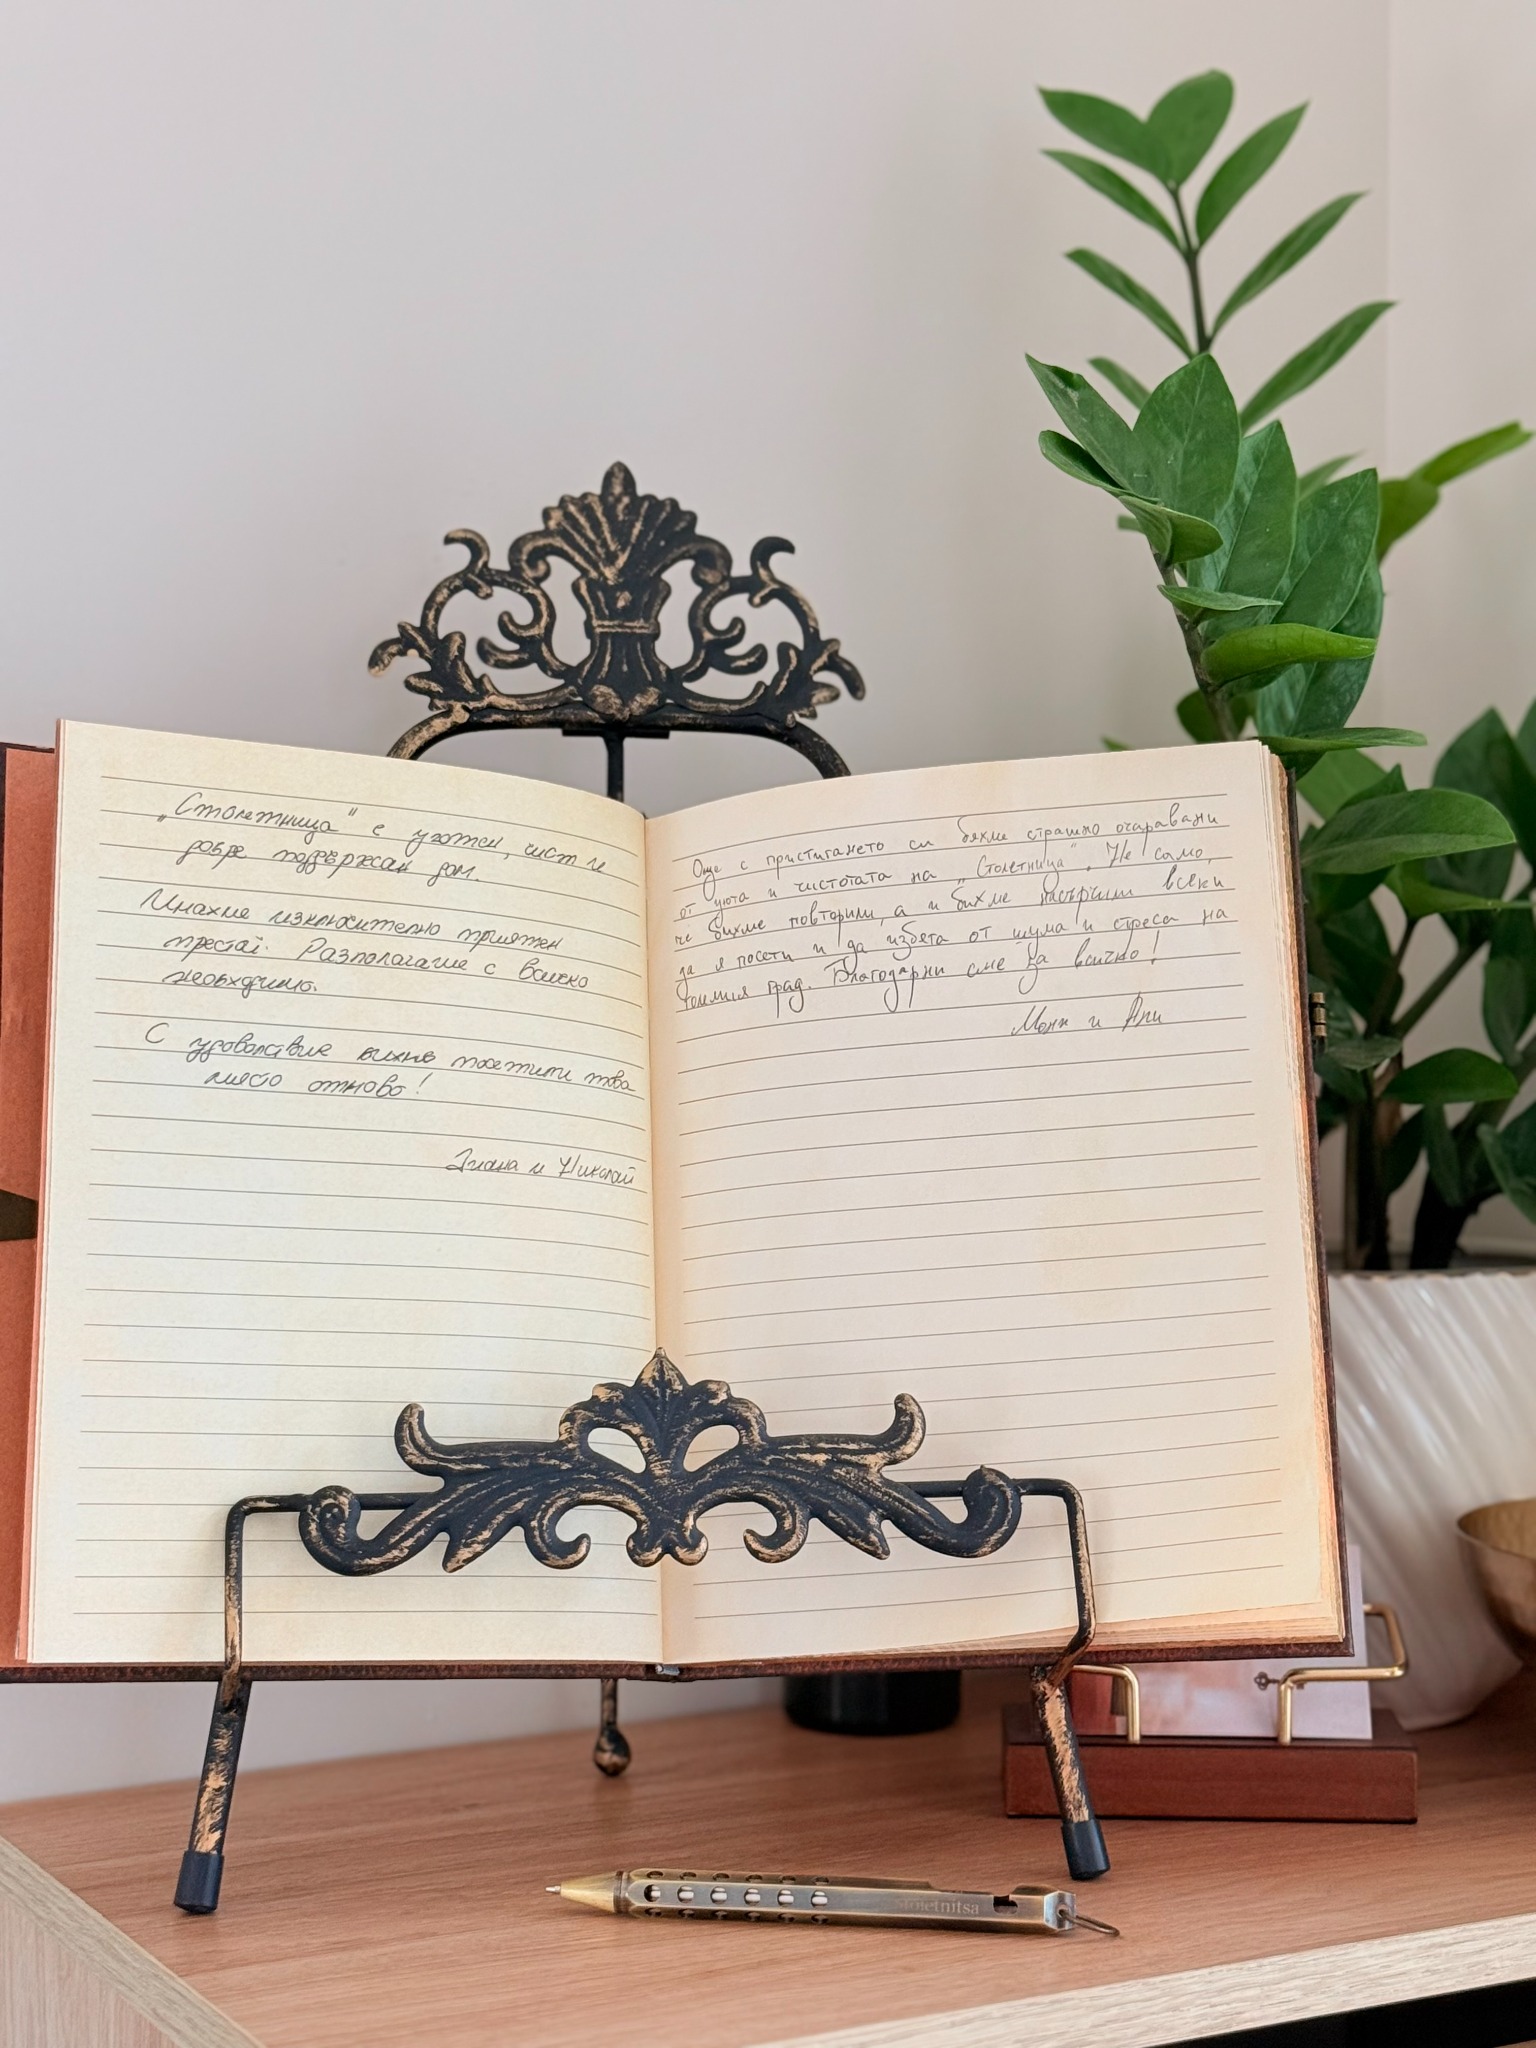 „Столетница" е уютен, чист и
добре поддържан дом.
Имахме изключително приятен
престой. Разполагаше с всичко
необходимо.
С удоволствие бихме посетили това
място отново!
Диана и Николай
Още с пристигането си бяхме страшно очаравани
от уюта и чистотата на „Столетница". Не само,
че бихме повторили, а и бихме насърчили всеки
да я посети и да избяга от шума и стреса на
големия град. Благодарни сме за всичко!
Мони и Ани
Stoletnitsa